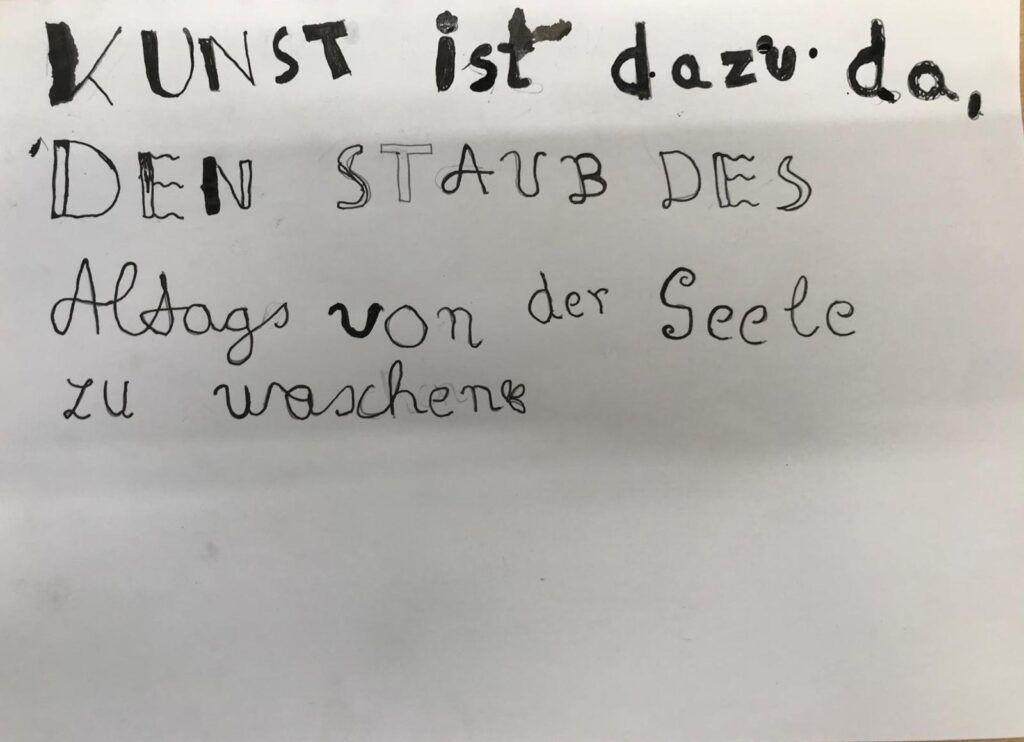 KUNST ist dazu da,
DEN STAUB DES
Altags von der Seele
zu waschen.